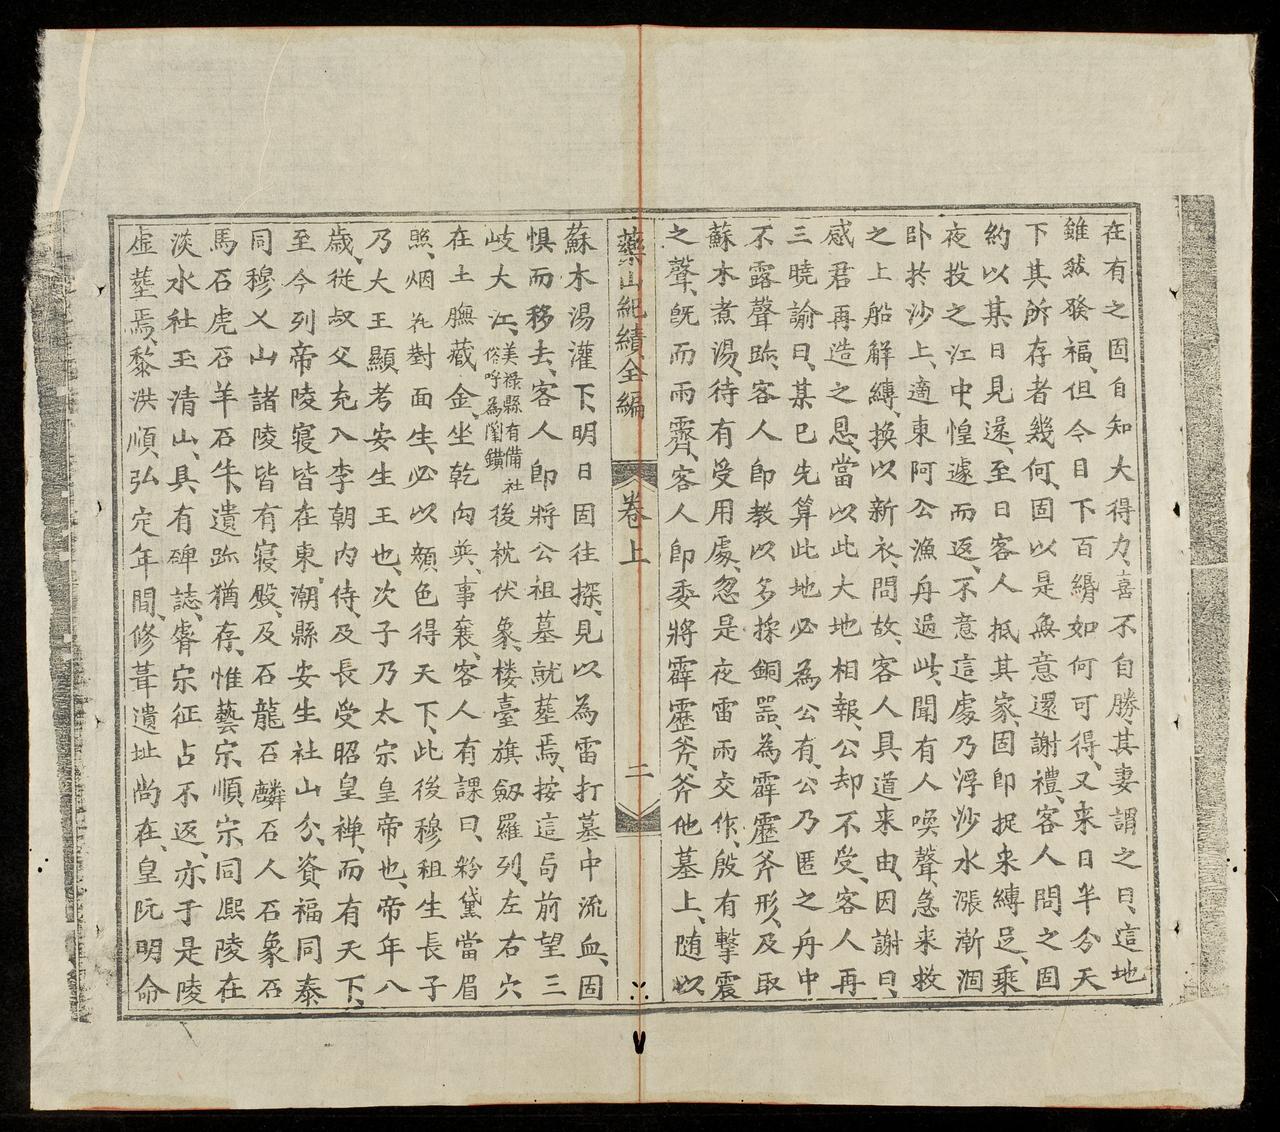 在有之固自知大得力、喜不自勝、其妻謂之曰、這地
雖然發福、但今日下百緡如何可得、又来日半分天
下其所存者幾何、固以是無意還謝禮、客人問之固
約以某日見還、至日客人抵其家、固即捉来縛足、乘
夜投之江中、惶遽而返、不意這處乃浮沙水漲漸涸
卧扵沙上、適東阿公漁舟過此、聞有人喚聲急来救
之上船解縛、換以新衣、問故、客人具道来由、因謝曰、
感君再造之恩、當以此大地相報、公却不受、客人再
三曉諭曰、某已先算此地必為公有、公乃匿之舟中
不露聲跡、客人即教以多採銅器、為霹靂斧形、及取
蘇木煮湯、待有受用處、忽是夜雷雨交作、殷有擊震
之聲、既而雨霽、客人即委將霹靂斧、斧他墓上、随以
藥山紀績全編 卷上 二
蘇木湯灌下、明日固往探、見以為雷打墓中流血、固
惧而移去、客人即將公祖墓就塟焉、按這局前望三
岐大江、美禄縣有備社俗呼為𨷈鐄後枕伏象、楼臺旗劔羅列、左右六
在土膴藏金、坐乾向巽、事襄、客人有課曰、粉黛當眉
照、烟花對面生、必以頰色得天下、此後穆祖生長子
乃大王、顯考安生王也、次子乃太宗皇帝也、帝年八
歳、従叔父充入李朝内侍、及長受昭皇禅、而有天下、
至今列帝陵寝皆在東潮縣安生社山分、資福同泰
同穆乂山諸陵皆有寝殿、及石龍石麟石人石象石
馬石虎石羊石牛、遺跡猶存、惟藝宗順宗同熙陵在
淡水社玉清山、具有碑誌、睿宗征占不返、亦于是陵
虚塟焉、黎洪順弘定年間、修葺遺址尚在、皇阮明命